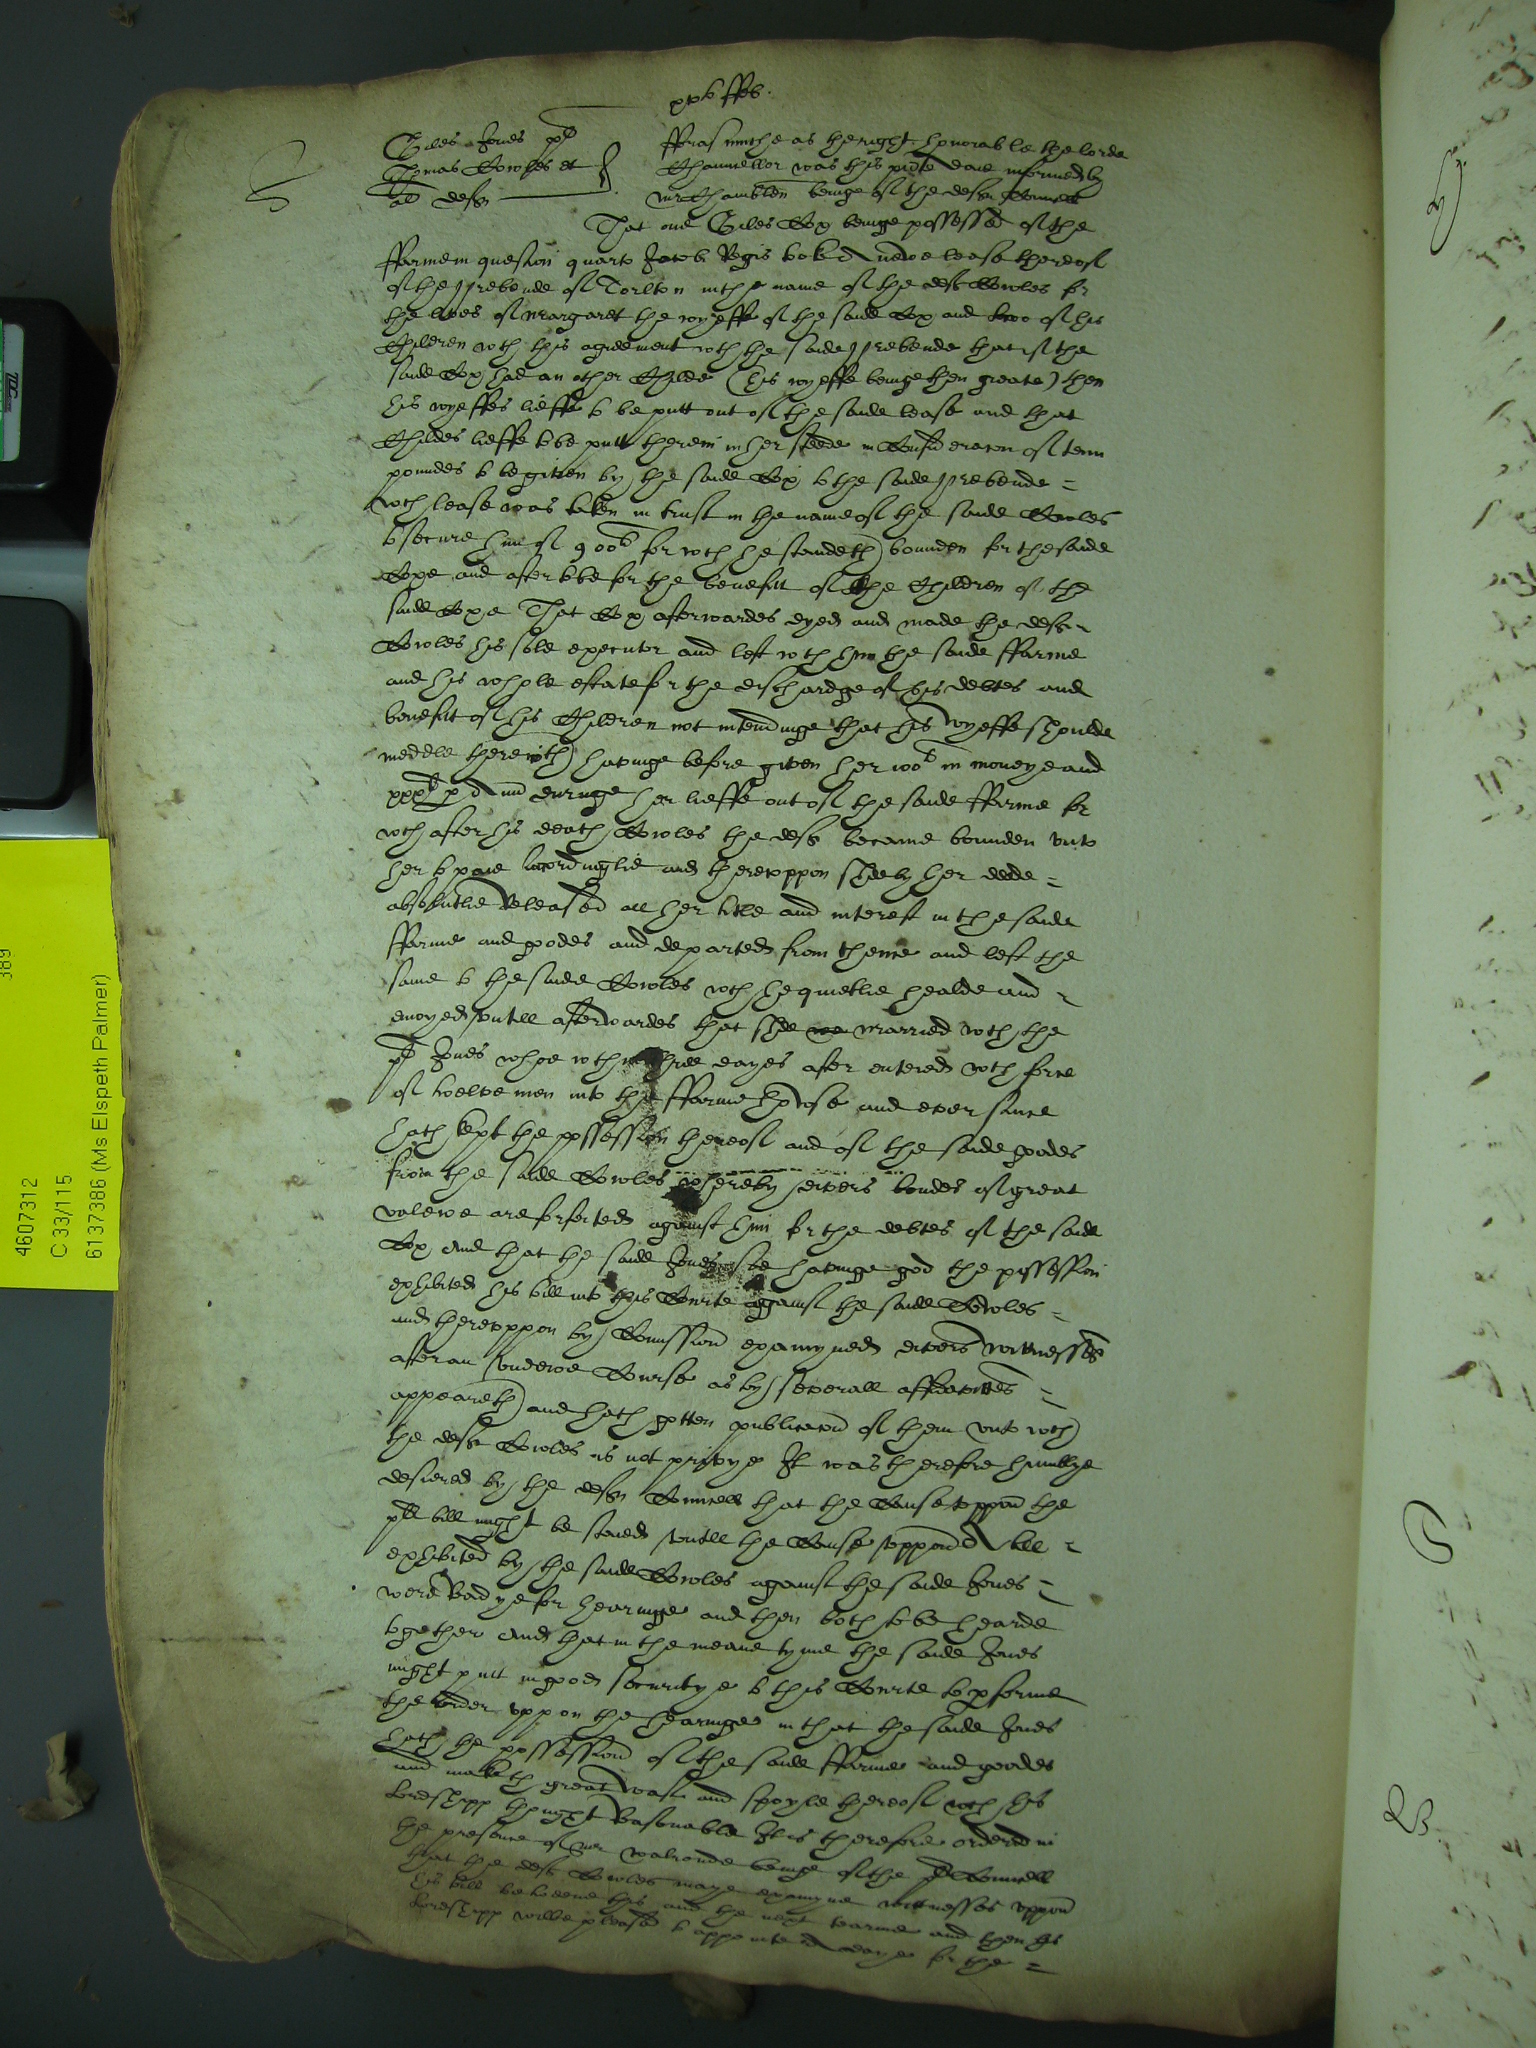 xxvo ffeb.
Giles Jones pl
Thomas Cowles et
al defts
fforasmuche as the right honorable the lorde
Chauncellor was this pnte daie informed by
mr Chamblen beinge of the defts Councell
That one Giles Cox beinge possessed of the
ffarme in question quarto Jacobi Regis tooke a newe lease thereof
of the prebende of Torlton in the name of the deft Cowles for
the lives of Margaret the wyeffe of the saide Cox and twoo of his
Children wth this agreement wth the saide prebende that if the
saide Cox had an other Childe (his wyeffe beinge then greate) then
his wyeffes lieffe to be putt out of the saide lease and that
Childes lieffe to be putt therein in her steede in Consideracon of tenn
poundes to be given by the saide Cox to the saide prebende =
wch lease was taken in trust in the name of the saide Cowles
to secure him of 900l for wch he standeth bounden for the saide
Coxe and after to be for the benefitt of the Children of the
saide Coxe That Cox afterwardes dyed and made the deft
Cowles his sole executor and left wth him the saide ffarme
and his whole estate for the dischardge of his debtes and
benefitt of his Children not intendinge that his wyeffe shoulde
meddle therewith havinge before given her 100l in moneye and
xxxl p Ann duringe her lieffe out of the saide ffarme for
wch after his death Cowles the deft became bounden unto
her to paie accordinglie and thereuppon shee by her deede =
absolutlie Released all her title and interest in the saide
ffarme and goodes and departed from thence and left the
same to the saide Cowles wch he quietlie healde and
enioyed untill afterwardes that shee married wth the
pl Jones whoe wthin three dayes after entered wth force
of twelve men into the ffarme howse and ever since
hath kept the possession thereof and of the saide goodes
from the saide Cowles whereby divers bondes of great
valewe are forfeited against him for the debtes of the saide
Cox And that the saide Jones soe havinge god the possession
exhibited his bill into this Courte against the saide Cowles =
and thereuppon by Comission examyned divers wittnesses
after an undewe Course as by severall affidavittes =
appeareth and hath gotten publicacon of them unto wch
the deft Cowles is not privye It was therefore humblye
desiered by the defts Councell that the Cause uppon the
pls bill might be staied untill the Cause uppon a bill =
exhibited by the saide Cowles against the saide Jones =
were Readye for hearinge and then both to be hearde
together And that in the meane tyme the saide Jones
might putt in good securitye to this Courte to pforme
the order uppon the hearinge in that the saide Jones
hath the possession of the saide ffarme and goodes
and maketh great wast and spoyle thereof wch his
Lordshipp thought Reasonable It is therefore ordered in
the presence of mr walronde beinge of the pls Councell
that the deft Cowles maye examyne wittnesses uppon
his bill betweene this and the next tearme and then his
Lordshipp wilbe pleased to appointe a daye for the =
4607312
C 33/115
6137386 (Ms Elspeth Palmer)
389
TDC